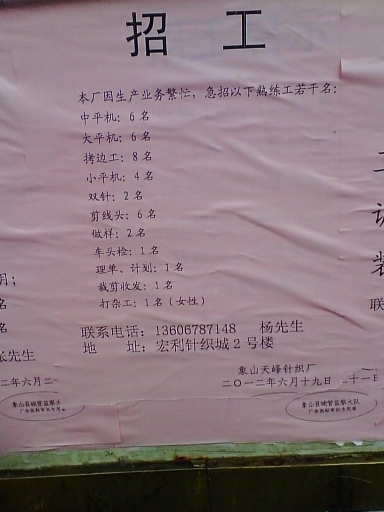 招 工
本厂因生产业务繁忙，急招以下熟练工若干名：
中平机：6名
大平机：6名
拷边工：8名
小平机：4名
双针：2名
剪线头：6名
做样：2名
车头检：1名
理单、计划：1名
裁剪收发：1名
打杂工：1名（女性）
联系电话：13606787148 杨先生
地 址：宏利针织城2号楼
象山天峰针织厂
二〇一二年六月十九日
象山县城管监察大队
二年六月二
象山县城管监察大
先生
名
名
联
二十一日